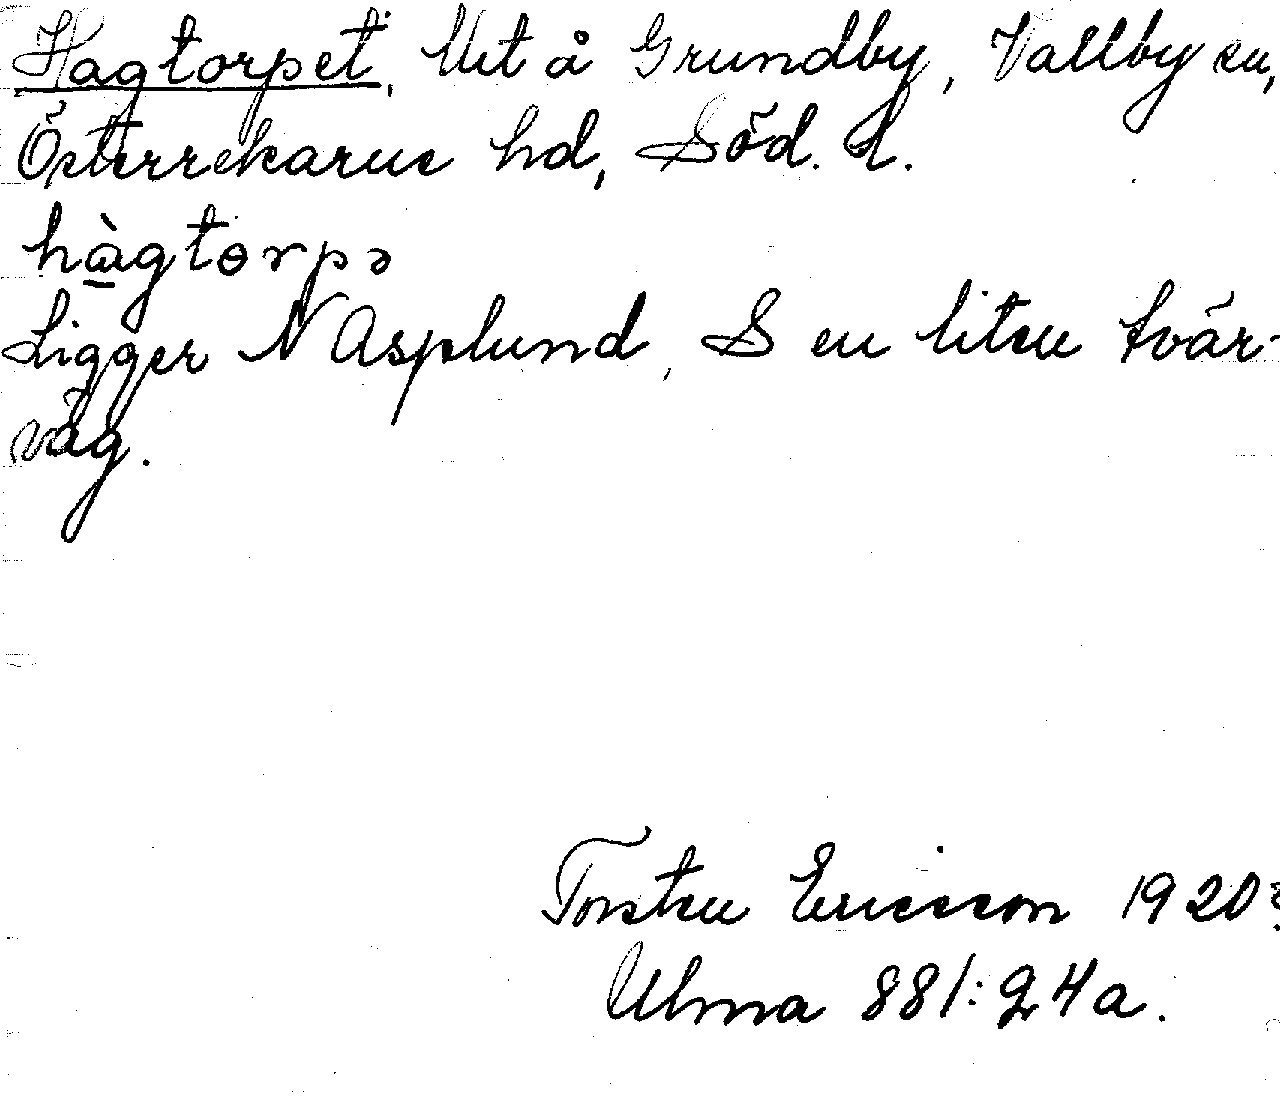 Hagtorpet, Utå Grundby, Vallby sn,
Österrekarne hd, Söd. l.
hàgtorpə
Ligger N Asplund, S en liten tvär-
väg.
Torsten Ericsson 1920?
Ulma 881:24a.